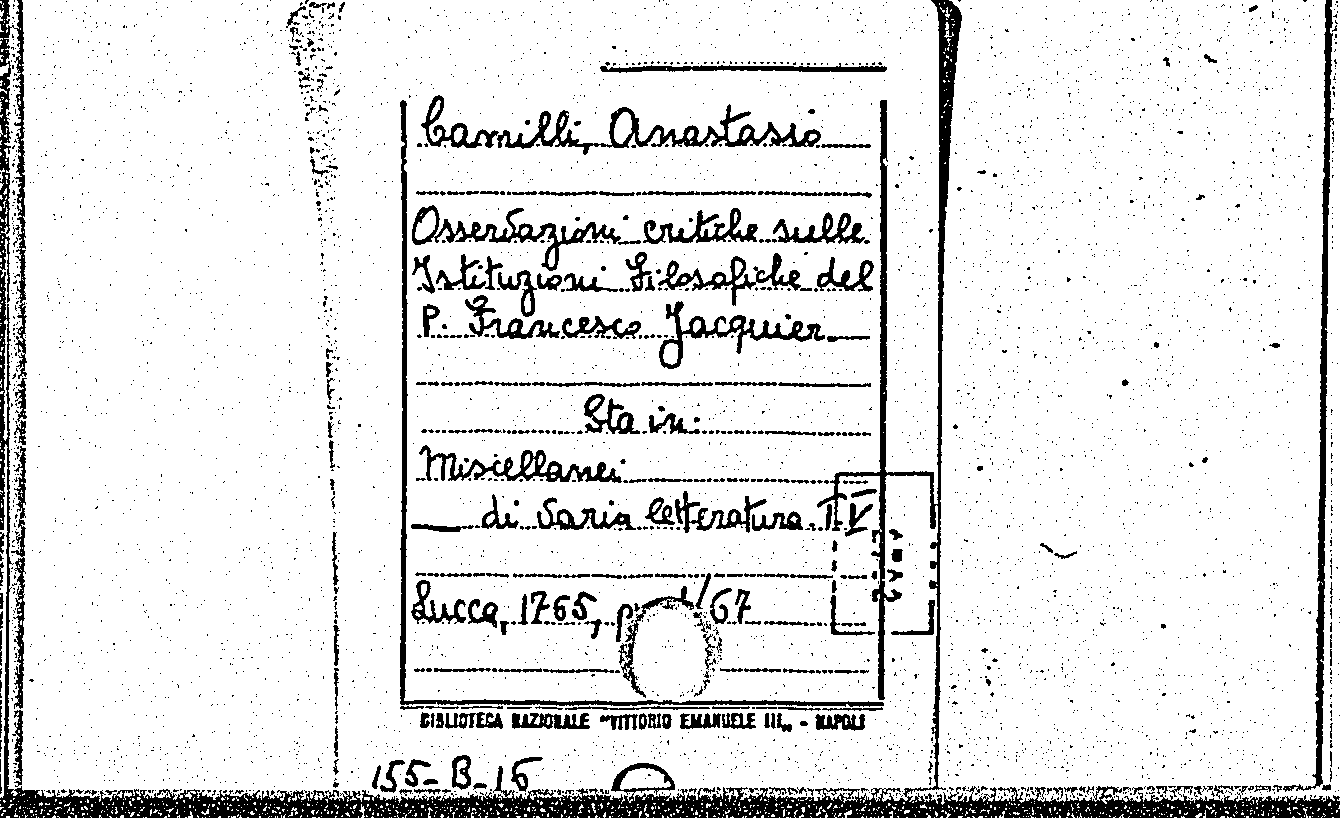 Camilli, Anastasio
Osservazioni critiche sulle
Istituzioni Filosofiche del
P. Francesco Jacquier.
Sta in:
Miscellanei
di varia letteratura. T V
Lucca, 1765, p. /67
BIBLIOTECA NAZIONALE "VITTORIO EMANUELE III„ - NAPOLI
155-B-15